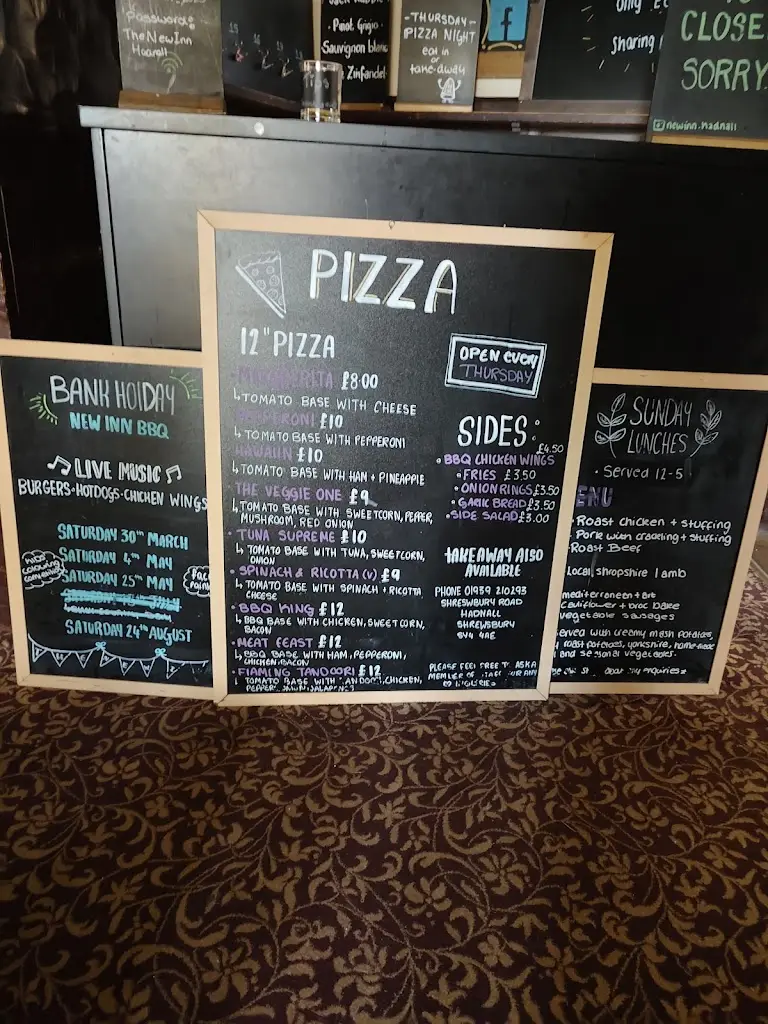 Password:
The NewInn
Pinot Grigio
Sauvignon blanc
Zinfandel
-THURSDAY-
PIZZA NIGHT
eat in
or
take-away
f
only
Sharing
SORRY
newinn.hadnall
BANK HOLIDAY
NEW INN BBQ
LIVE MUSIC
BURGERS•HOTDOGS•CHICKEN WINGS
SATURDAY 30TH MARCH
SATURDAY 4TH MAY
SATURDAY 25TH MAY
SATURDAY 24TH AUGUST
PIZZA
12" PIZZA
£8.00
TOMATO BASE WITH CHEESE
£10
TOMATO BASE WITH PEPPERONI
HAWAIIN £10
TOMATO BASE WITH HAM + PINEAPPLE
THE VEGGIE ONE £9
TOMATO BASE WITH SWEETCORN, PEPPER,
MUSHROOM, RED ONION
TUNA SUPREME £10
TOMATO BASE WITH TUNA, SWEETCORN,
ONION
SPINACH & RICOTTA (V) £9
TOMATO BASE WITH SPINACH + RICOTTA
CHEESE
BBQ KING £12
BBQ BASE WITH CHICKEN, SWEETCORN,
BACON
MEAT FEAST £12
BBQ BASE WITH HAM, PEPPERONI,
CHICKEN, BACON
FLAMING TANDOORI £12
TOMATO BASE WITH CHICKEN,
OPEN EVERY
THURSDAY
SIDES:
£4.50
•BBQ CHICKEN WINGS
•FRIES £3.50
•ONION RINGS £3.50
•GARLIC BREAD £3.50
•SIDE SALAD £3.00
TAKEAWAY ALSO
AVAILABLE
PHONE 01939 210293
SHREWSBURY ROAD
HADNALL
SHREWSBURY
SY4 4AE
PLEASE FEEL FREE TO ASK A
SUNDAY
LUNCHES
•Served 12-5
Roast chicken + stuffing
Pork with crackling + stuffing
Roast Beef
Local shropshire lamb
Cauliflower + broc bake
vegetable sausages
with creamy mash potatoes,
roast potatoes, yorkshire, home-made
and seasonal vegetables.